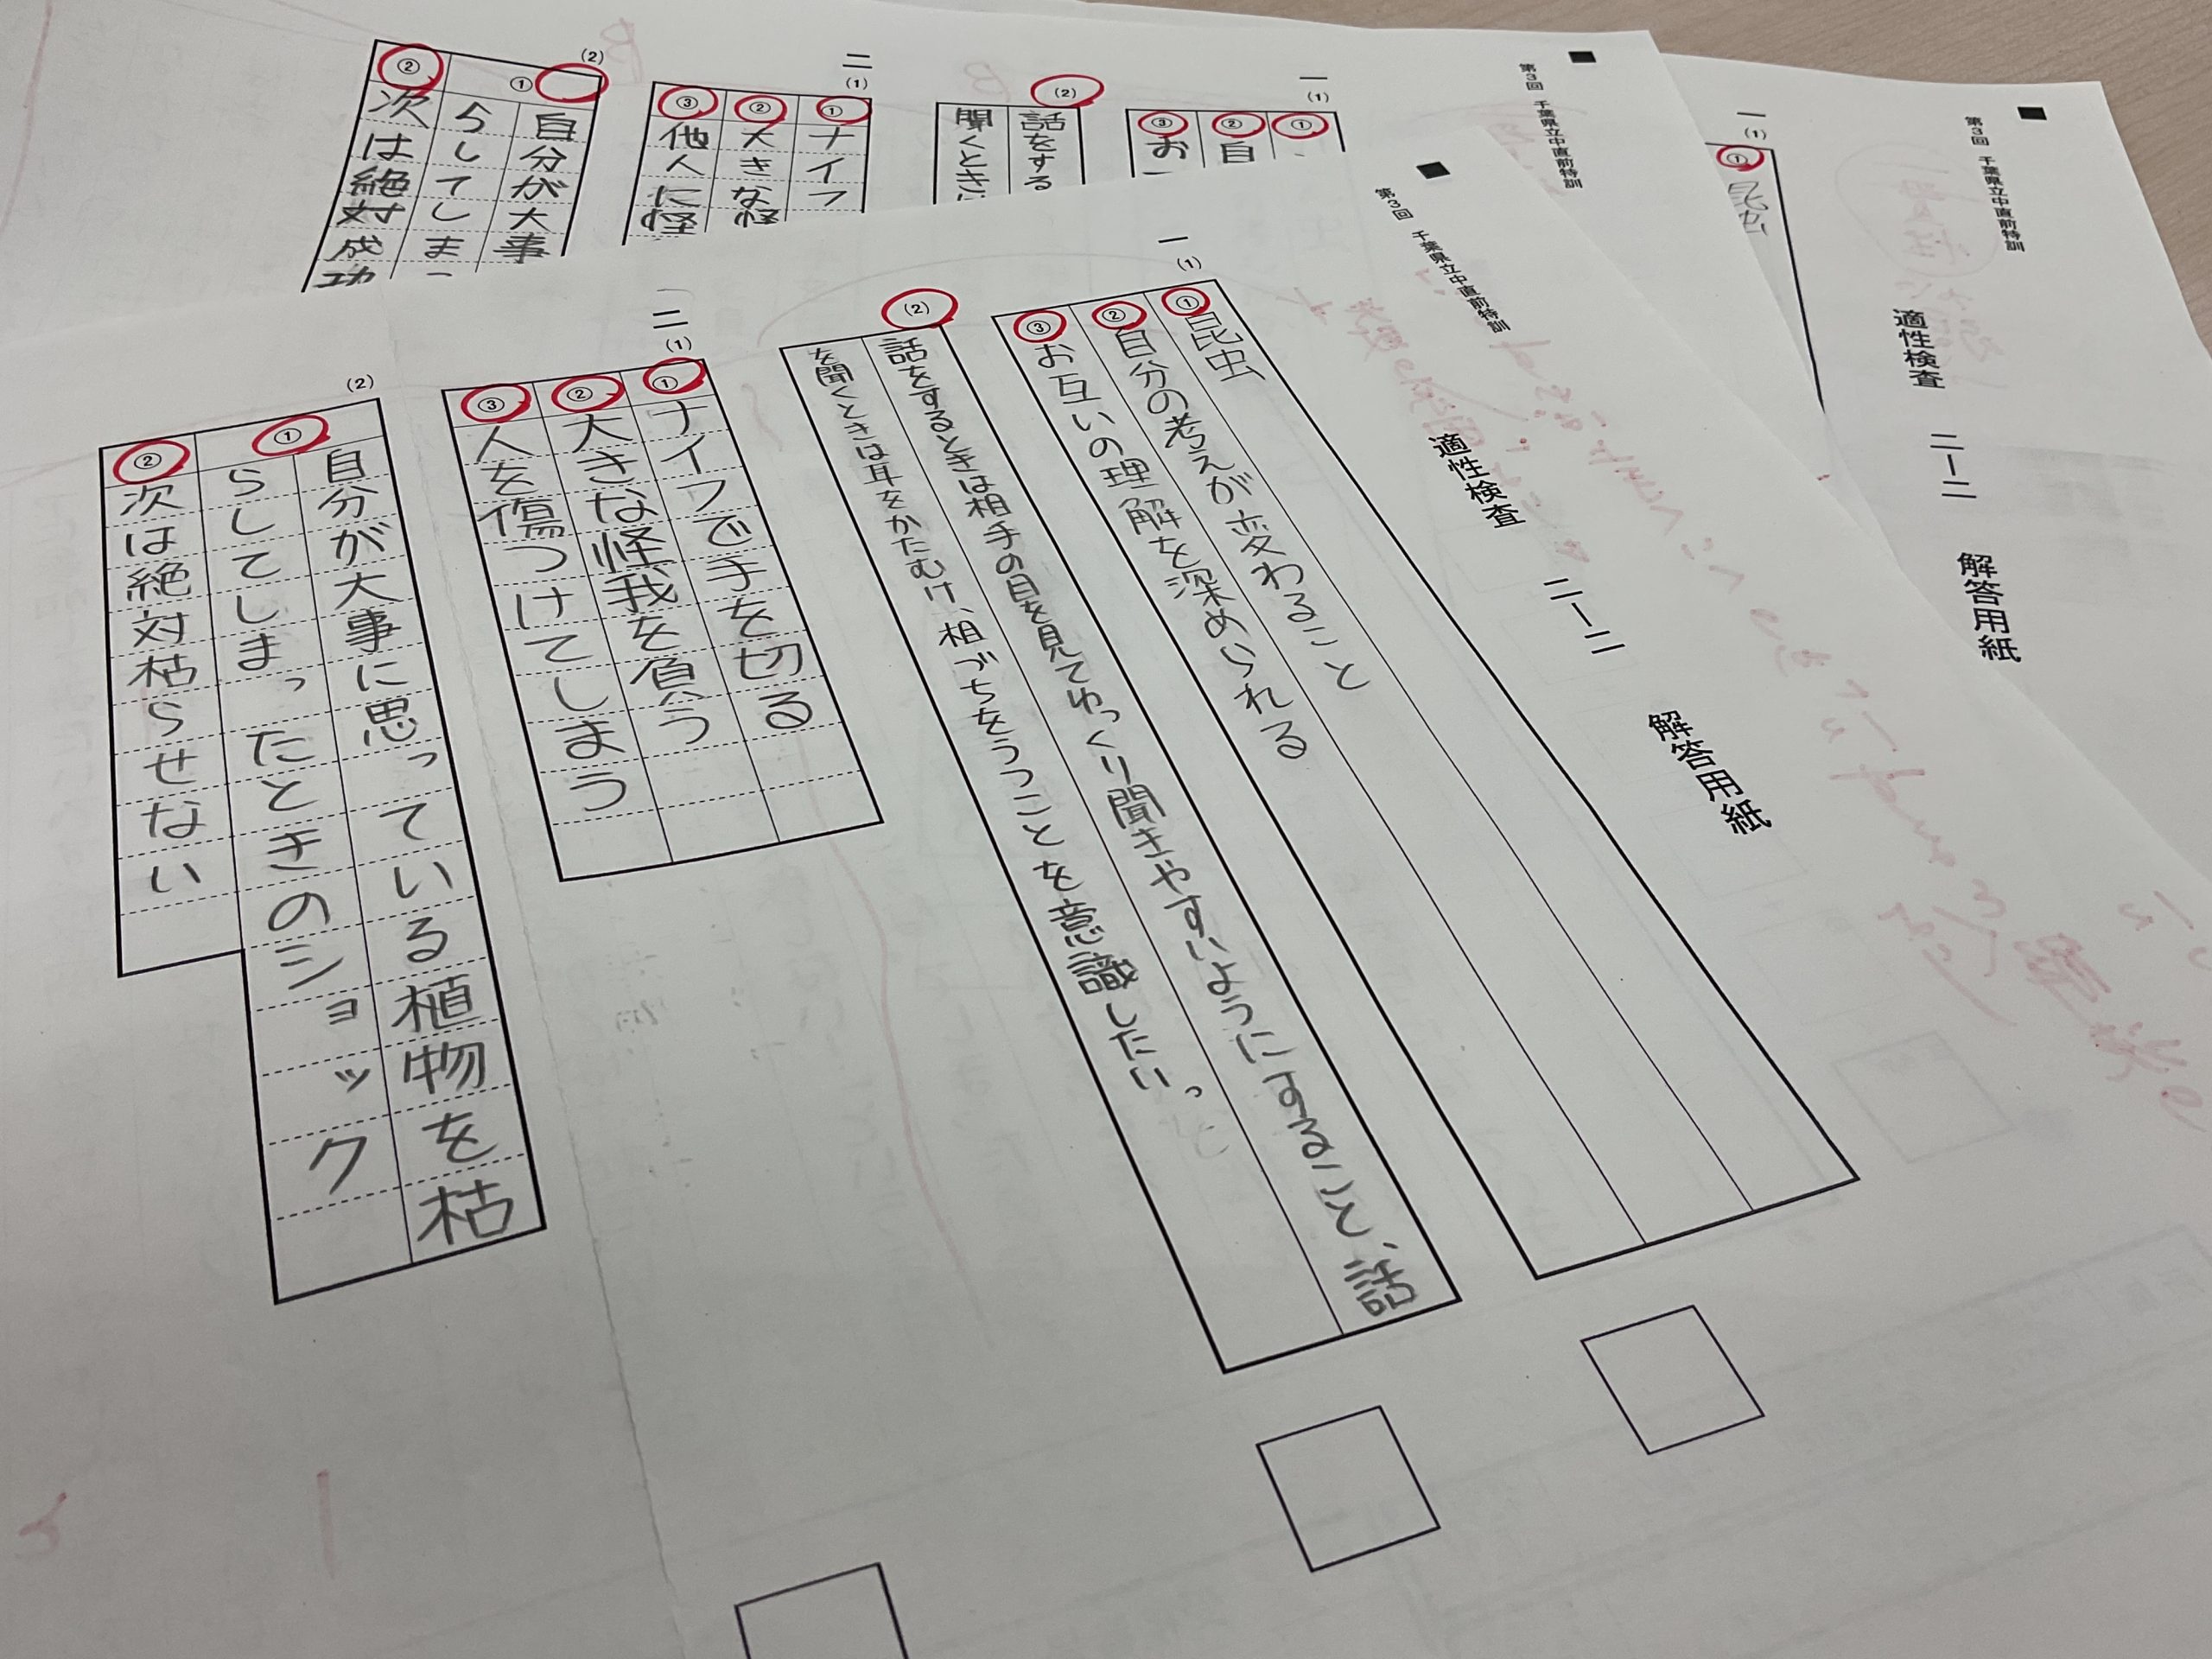 第3回 千葉県立中直前特訓
適性検査 二―二 解答用紙
一
(1)
① 昆虫
② 自分の考えが変わること
③ お互いの理解を深められる
(2)
話をするときは相手の目を見てゆっくり聞きやすいようにすること、話
を聞くときは耳をかたむけ、相づちをうつことを意識したい。
二
(1)
① ナイフで手を切る
② 大きな怪我を負う
③ 人を傷つけてしまう
(2)
① 自分が大事に思っている植物を枯
らしてしまったときのショック
② 次は絶対枯らせない
第3回 千葉県立中直前特訓
一
(1)
①
② 自
③ お
(2)
話をする
聞くとき
二
(1)
① ナイフ
② 大きな怪
③ 他人に怪
(2)
① 自分が大事
らしてしま
② 次は絶対成功
第3回 千葉県立中直前特訓
適性検査 二―二 解答用紙
一
(1)
① 昆虫